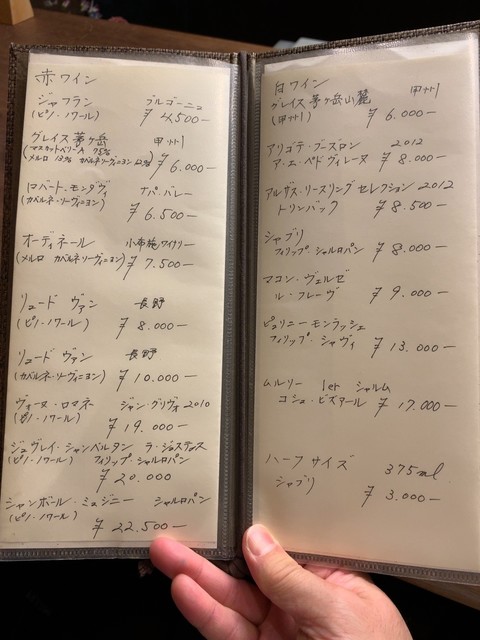 赤ワイン
ジャフラン ブルゴーニュ
(ピノ・ノワール) ¥4,500—
グレイス茅ヶ岳 甲州
(マスカットベリーA 75%
メルロ 13% カベルネソーヴィニヨン 12%) ¥6.000—
ロバート・モンダヴィ ナパ・バレー
(カベルネ・ソーヴィニヨン) ¥6.500—
オーディネール 小布施ワイナリー
(メルロ カベルネソーヴィニヨン) ¥7.500—
リュード ヴァン 長野
(ピノ・ノワール) ¥8.000—
リュード ヴァン 長野
(カベルネ・ソーヴィニヨン) ¥10.000—
ヴォーヌ・ロマネ ジャン・グリヴォ 2010
(ピノ・ノワール) ¥19.000—
ジュヴレイ・シャンベルタン ラ・ジュスティス
(ピノ・ノワール) フィリップ・シャルロパン
¥20.000
シャンボール・ミュジニー シャルロパン
(ピノ・ノワール) ¥22.500—
白ワイン
グレイス茅ヶ岳山麓 甲州
(甲州) ¥6.000—
アリゴテ・ブーズロン 2012
ア・エ・ペ・ド ヴィレーヌ ¥8.000—
アルザス・リースリング セレクション 2012
トリンバック ¥8.500—
シャブリ
フィリップ・シャルロパン ¥8.000—
マコン・ヴェルゼ
ル・フレーヴ ¥9.000—
ピュリニーモンラッシェ
フィリップ・シャヴィ ¥13.000—
ムルソー 1er シャルム
コシュ・ビズアール ¥17.000—
ハーフサイズ 375ml.
シャブリ ¥3.000—